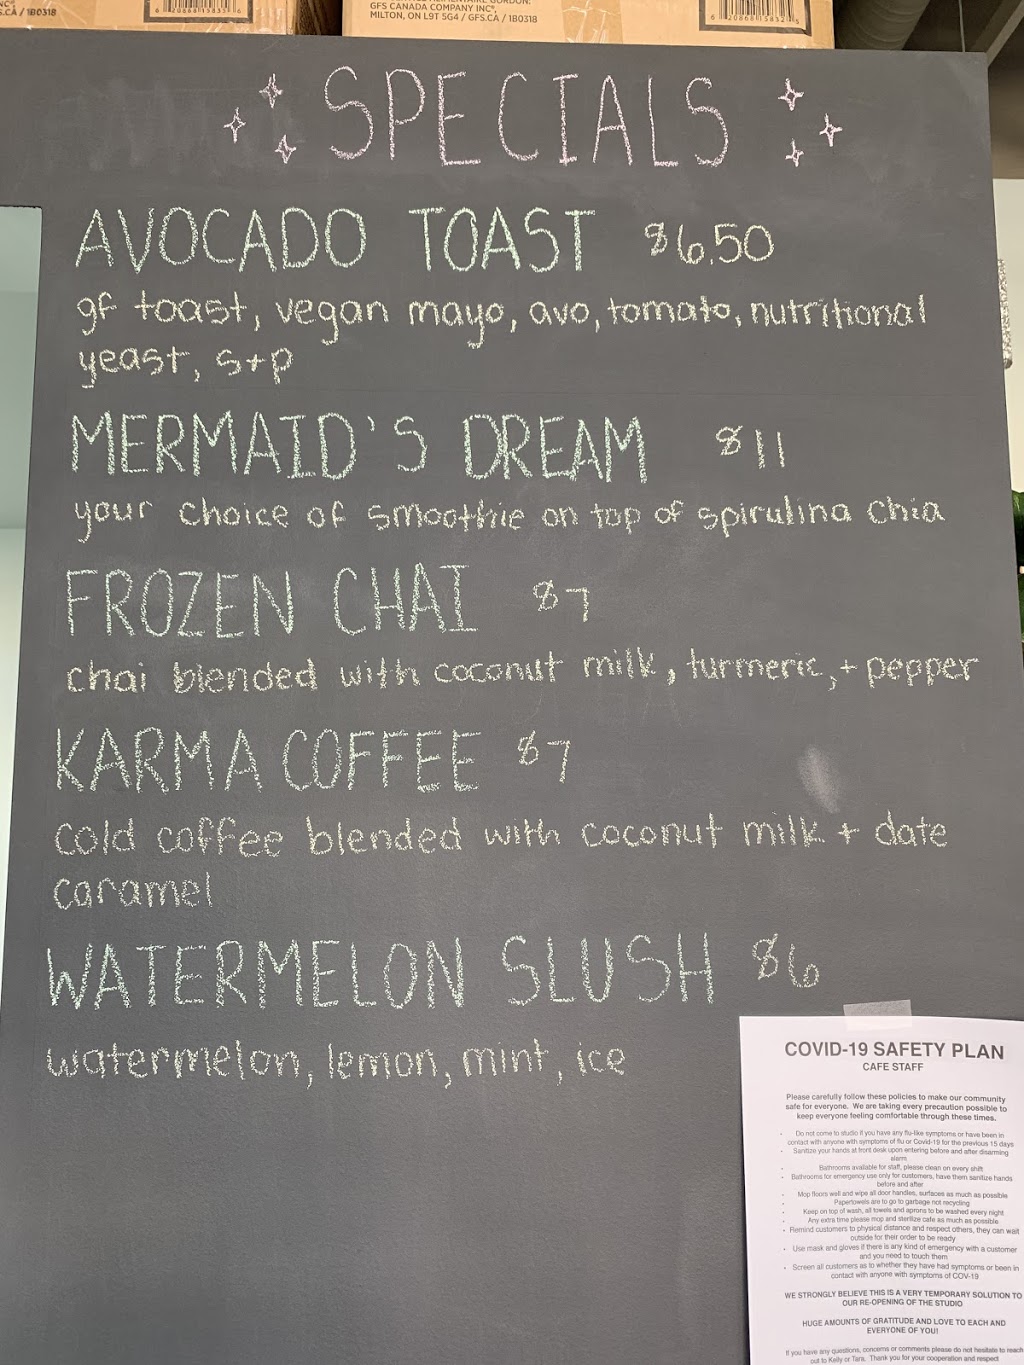 GFS CANADA COMPANY INC.
MILTON, ON L9T 5G4 / GFS.CA / 1B0318
SPECIALS
AVOCADO TOAST $6.50
gf toast, vegan mayo, avo, tomato, nutritional
yeast, s+p
MERMAID'S DREAM $11
your choice of smoothie on top of spirulina chia
FROZEN CHAI $7
chai blended with coconut milk, turmeric, + pepper
KARMA COFFEE $7
cold coffee blended with coconut milk + date
caramel
WATERMELON SLUSH $6
watermelon, lemon, mint, ice
COVID-19 SAFETY PLAN
CAFE STAFF
Please carefully follow these policies to make our community
safe for everyone. We are taking every precaution possible to
keep everyone feeling comfortable through these times.
Do not come to studio if you have any flu-like symptoms or have been in
contact with anyone with symptoms of flu or Covid-19 for the previous 15 days
Sanitize your hands at front desk upon entering before and after disarming
alarm
Bathrooms available for staff, please clean on every shift
Bathrooms for emergency use only for customers, have them sanitize hands
before and after
Mop floors well and wipe all door handles, surfaces as much as possible
Papertowels are to go to garbage not recycling
Keep on top of wash, all towels and aprons to be washed every night
Any extra time please mop and sterilize cafe as much as possible
Remind customers to physical distance and respect others, they can wait
outside for their order to be ready
Use mask and gloves if there is any kind of emergency with a customer
and you need to touch them
Screen all customers as to whether they have had symptoms or been in
contact with anyone with symptoms of COV-19
WE STRONGLY BELIEVE THIS IS A VERY TEMPORARY SOLUTION TO
OUR RE-OPENING OF THE STUDIO
HUGE AMOUNTS OF GRATITUDE AND LOVE TO EACH AND
EVERYONE OF YOU!
If you have any questions, concerns or comments please do not hesitate to reach
out to Kelly or Tara. Thank you for your cooperation and respect